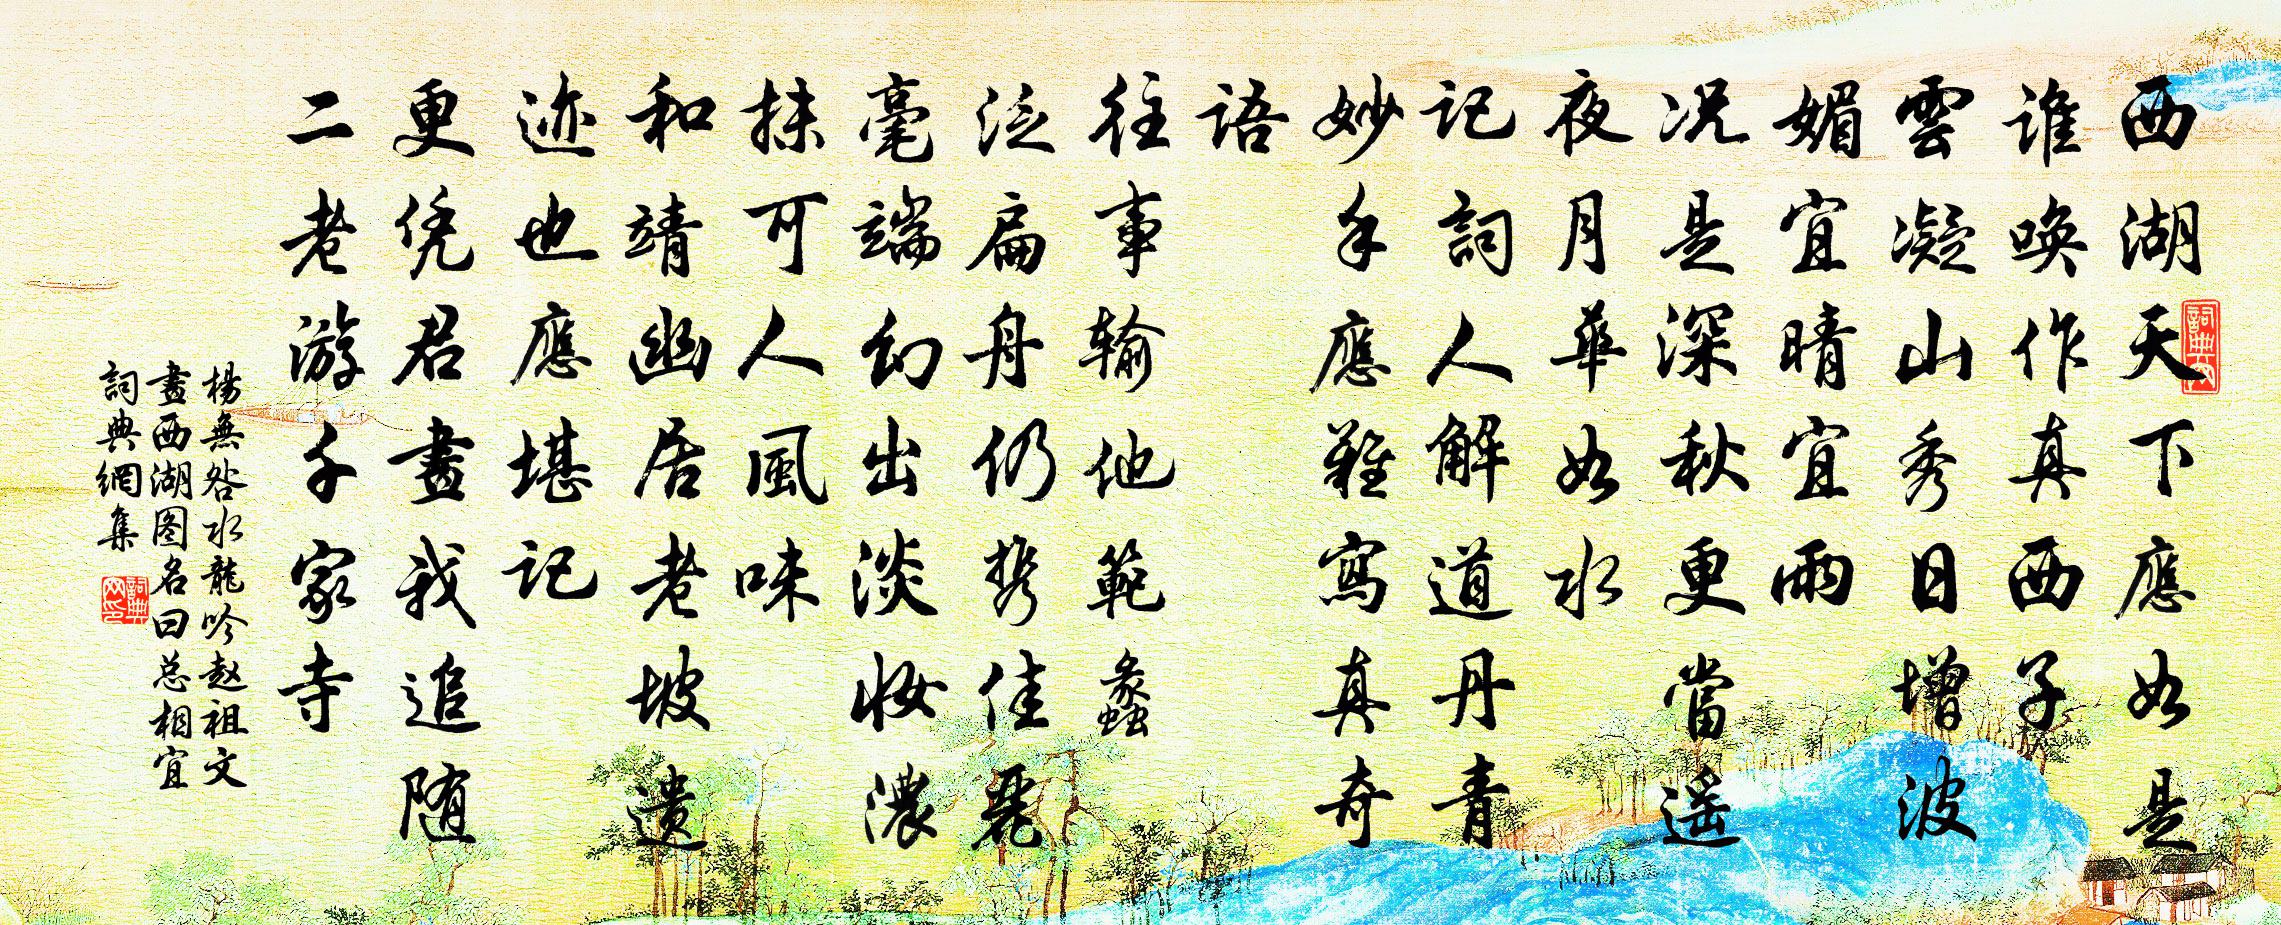 西湖天下應如是
谁唤作真西子
雲凝山秀日增波
媚宜晴宜雨
况是深秋更當遥
夜月華如水
記詞人解道丹青
妙手應難寫真奇
語
往事输他範蠡
泛扁舟仍携佳麗
毫端幻出淡妝濃
抹可人風味
和靖幽居老坡遗
迹也應堪記
更凭君畫我追随
二老游千家寺
楊無咎水龍吟赵祖文
畫西湖图名曰总相宜
詞典網集